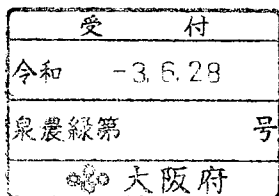 受付
令和 -3.6.28
泉農緑第 号
大阪府